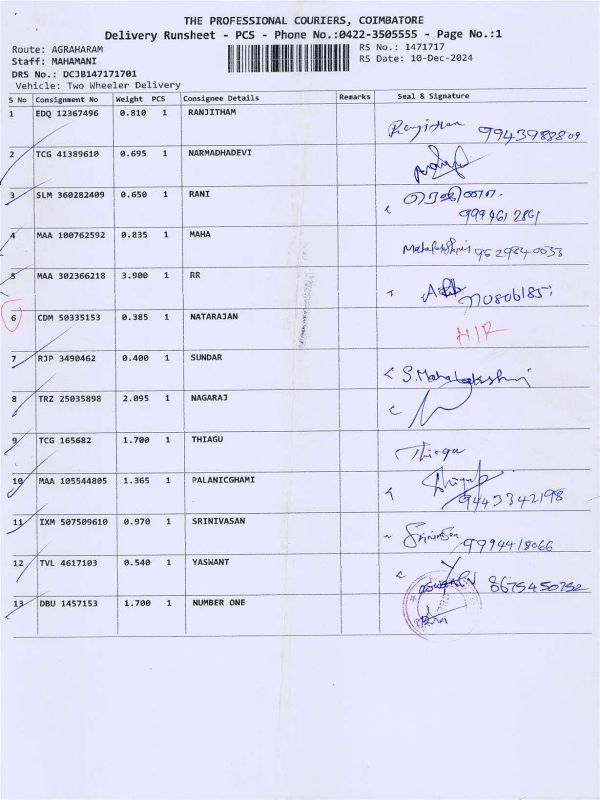 THE PROFESSIONAL COURIERS, COIMBATORE
Delivery Runsheet - PCS - Phone No.:0422-3505555 - Page No.:1
Route: AGRAHARAM RS No.: 1471717
Staff: MAHAMANI RS Date: 10-Dec-2024
DRS No.: DCJB147171701
Vehicle: Two Wheeler Delivery
S No Consignment No Weight PCS Consignee Details Remarks Seal & Signature
1 EDQ 12367496 0.810 1 RANJITHAM Ranjitham
2 TCG 41389610 0.695 1 NARMADHADEVI
3 SLM 360282409 0.650 1 RANI
4 MAA 100762592 0.835 1 MAHA 9629840033
5 MAA 302366218 3.900 1 RR
6 CDM 50335153 0.385 1 NATARAJAN
7 RJP 3490462 0.400 1 SUNDAR S.Mahalakshmi
8 TRZ 25035898 2.095 1 NAGARAJ
9 TCG 165682 1.700 1 THIAGU Thiagu
10 MAA 105544805 1.365 1 PALANICGHAMI 9443342198
11 IXM 507509610 0.970 1 SRINIVASAN Srinivasan 9994418066
12 TVL 4617103 0.540 1 YASWANT 8675450752
13 DBU 1457153 1.700 1 NUMBER ONE